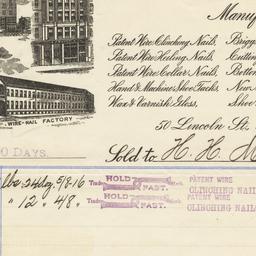 Manuf
Patent Wire Clinching Nails, Brigg
Patent Wire Heeling Nails, Cuttin
Patent Wire Collar Nails, Button
Hand & Machine Shoe Tacks, New
Wax & Varnish Gloss, Shoe
WIRE-NAIL FACTORY
50 Lincoln St.
0 DAYS.
Sold to H. H. M
lbs 5/8.16 Trade HOLD FAST. PATENT WIRE CLINCHING NAIL
" 12 " 4/8 " Trade HOLD FAST. PATENT WIRE CLINCHING NAIL